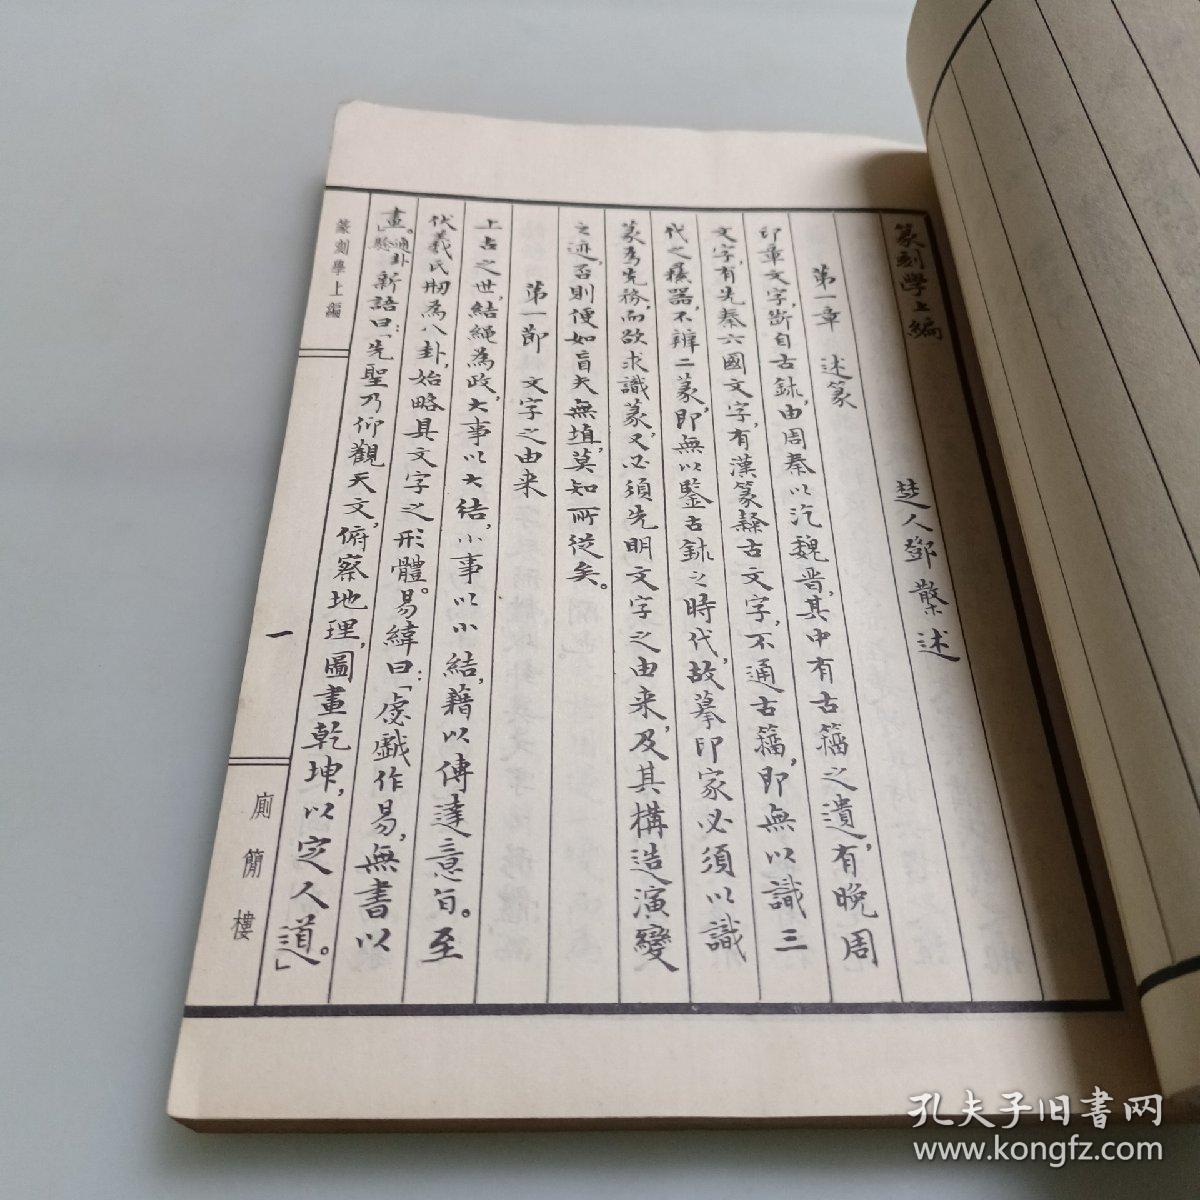 篆刻學上編
楚人鄧散述
第一章　述篆
印章文字,斷自古鉥,由周秦以汔魏晋,其中有古籀之遺,有晚周
文字,有先秦六國文字,有漢篆繇古文字,不通古籀,即無以識三
代之彝器,不辨二篆,即無以鑒古鉥之時代,故摹印家必須以識
篆為先務,而欲求識篆,又必須先明文字之由来,及其構造演變
之迹,否則便如盲夫無埴,莫知所從矣。
第一節　文字之由来
上古之世,結繩為政,大事以大结,小事以小結,藉以傳達意旨。至
伏羲氏剏為八卦,始略具文字之形體。易緯曰:「虙戲作易,無書以
畫。」通卦驗新語曰:「先聖乃仰觀天文,俯察地理,圖畫乾坤,以定人道。」
篆刻學上編
一
廁簡樓
孔夫子旧書网
www.kongfz.com